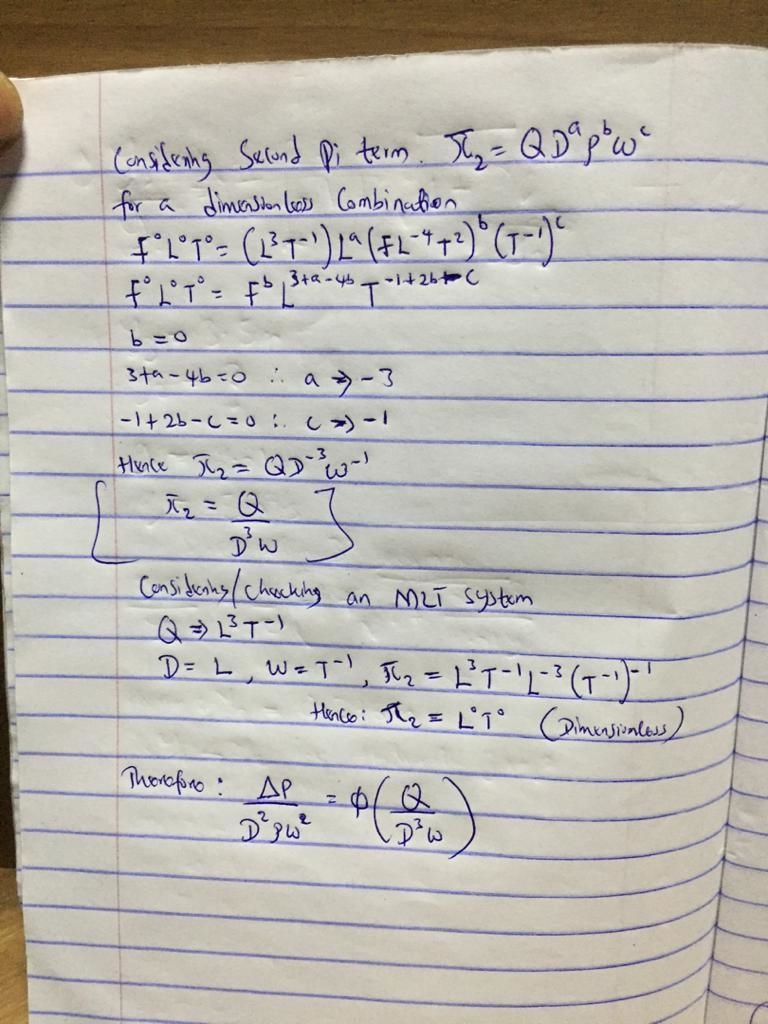 Considering Second Pi term. π₂ = QDᵃρᵇωᶜ
for a dimensionless Combination
F⁰L⁰T⁰ = (L³T⁻¹) Lᵃ (FL⁻⁴T²)ᵇ (T⁻¹)ᶜ
F⁰L⁰T⁰ = Fᵇ L³⁺ᵃ⁻⁴ᵇ T⁻¹⁺²ᵇ⁻ᶜ
b = 0
3+a-4b=0 ∴ a ⇒ -3
-1+2b-c=0 ∴ c ⇒ -1
Hence π₂ = QD⁻³ω⁻¹
[π₂ = Q/D³ω]
Considering/checking an MLT system
Q ⇒ L³T⁻¹
D = L, ω = T⁻¹, π₂ = L³T⁻¹L⁻³(T⁻¹)⁻¹
Hence: π₂ = L⁰T⁰ (Dimensionless)
Therefore: ΔP/D²ρω² = φ(Q/D³ω)